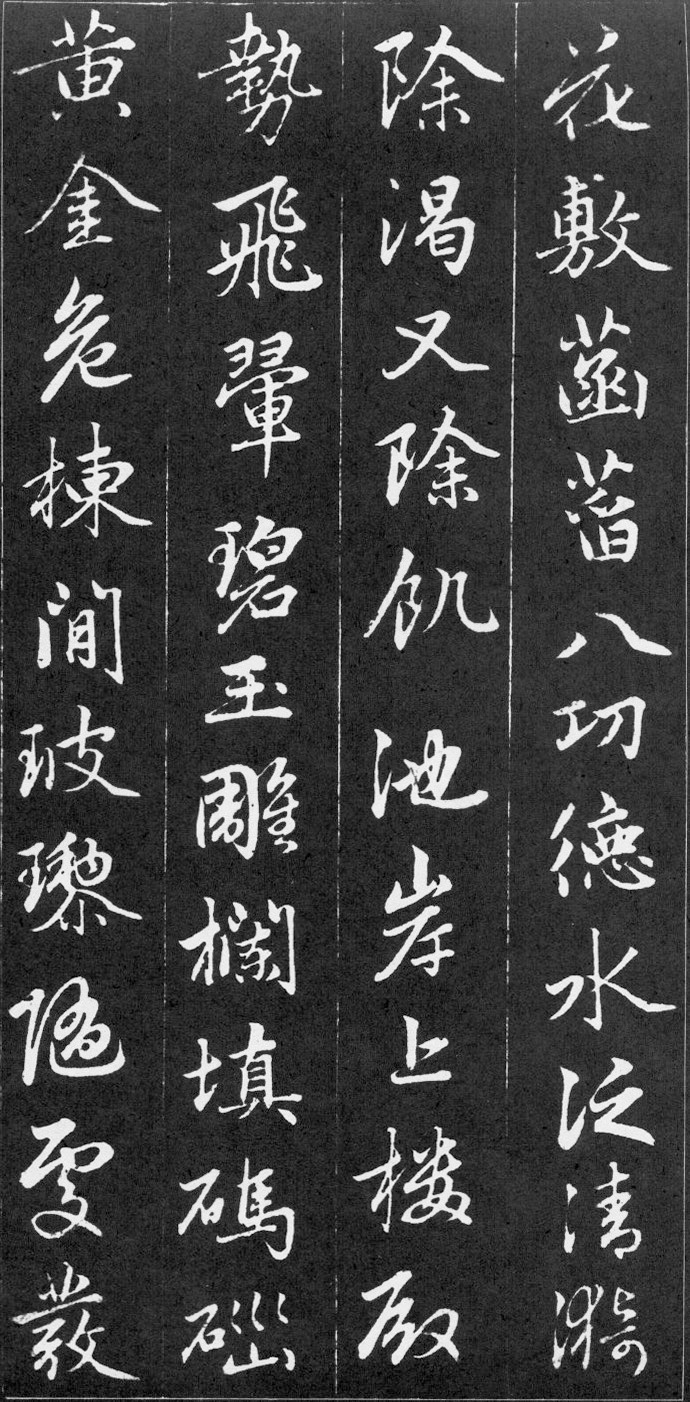 花敷菡萏八功德水泛清漪
除渴又除飢池岸上楼殿
勢飛翬碧玉雕欄填碼碯
黄金危棟間玻瓈随處發